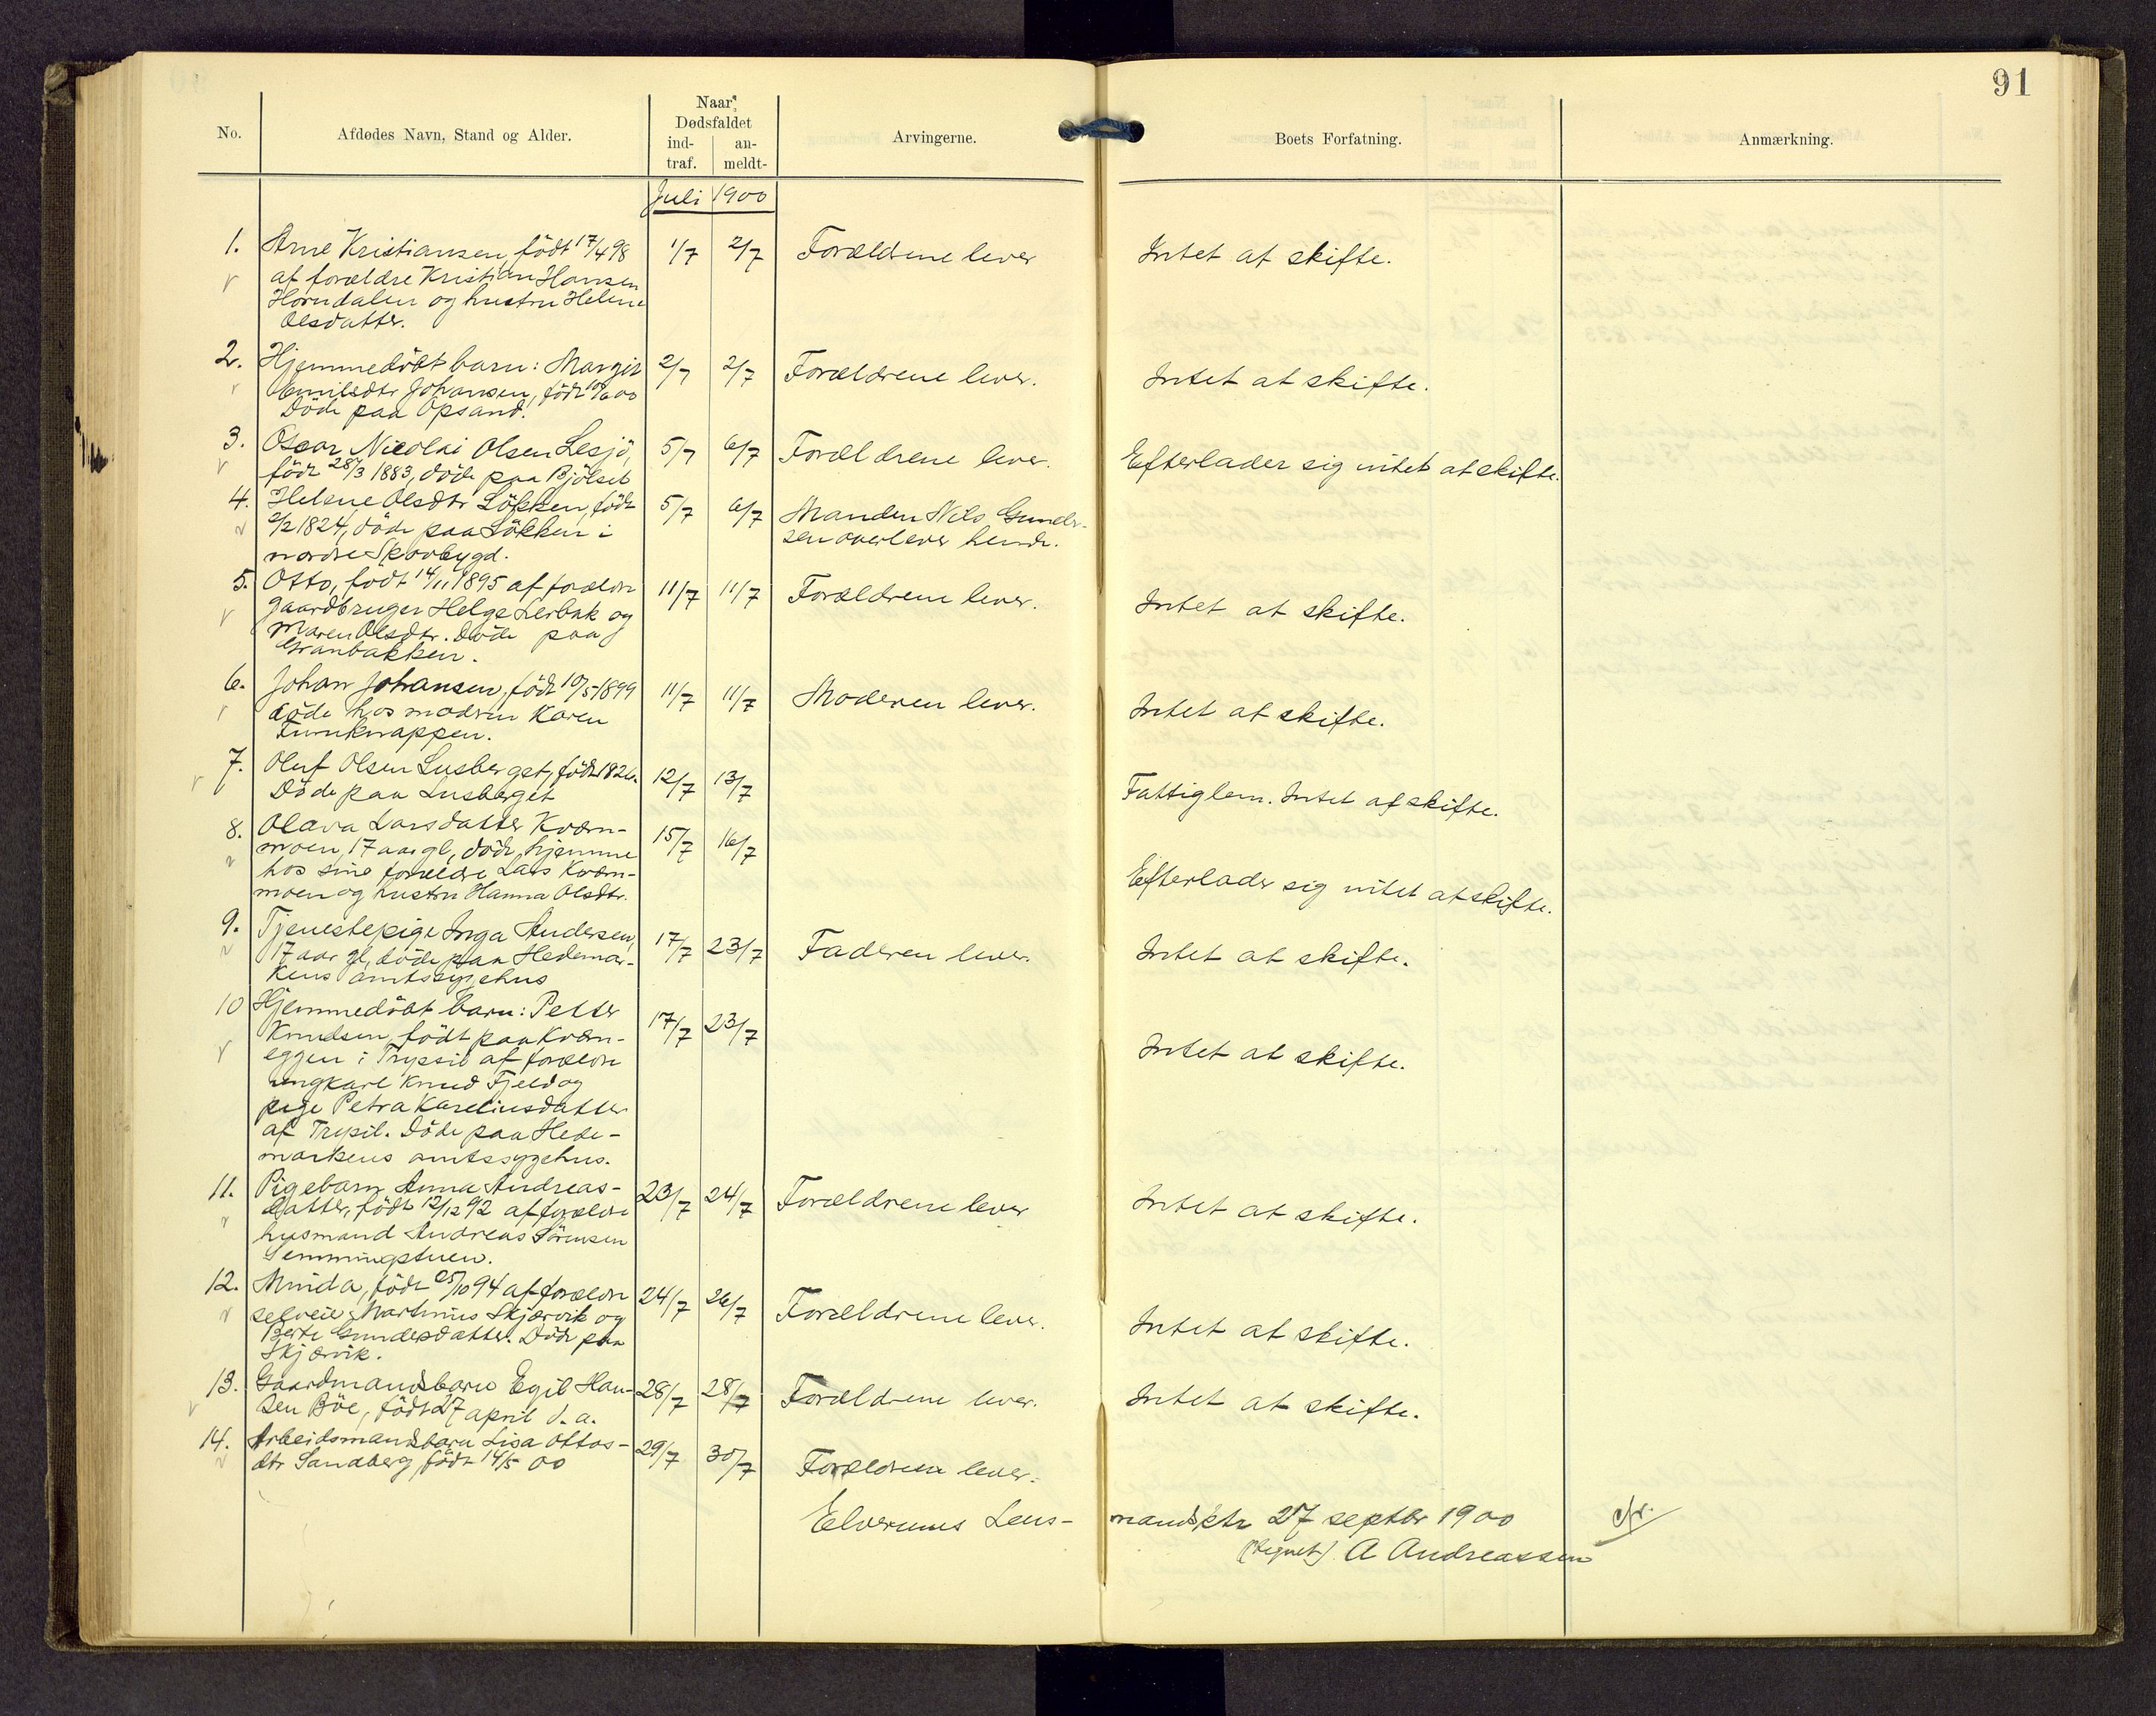 91
No.
Afdødes Navn, Stand og Alder.
Naar
Dødsfaldet
ind-
traf.
an-
meldt-
Arvingerne.
Boets Forfatning.
Anmærkning.
Juli 1900
1. Arne Kristiansen, födt 17/4 98 1/7 2/7 Forældrene lever Intet at skifte.
af forældre Kristian Hansen
Horndalen og hustru Helene
Olsdatter.
2. Hjemmedöbt barn: Margit 2/7 2/7 Forældrene lever. Intet at skifte.
Emilsdtr Johansen, födt 10/6 00
Döde paa Opsand.
3. Oscar Nicolai Olsen Lesjö, 5/7 6/7 Forældrene lever. Efterlader sig intet at skifte.
födt 28/3 1883, döde paa Bjölset
4. Helene Olsdtr Lökken, födt 5/7 6/7 Manden Nils Gunder-
2/2 1824, döde paa Lökken i sen overlever hende.
nordre Skovbygd.
5. Otto, födt 14/11 1895 af forældre 11/7 11/7 Forældrene lever. Intet at skifte.
gaardbruger Helge Lerbak og
Maren Olsdtr. Döde paa
Granbakken.
6. Johan Johansen, födt 10/5 1899 11/7 11/7 Moderen lever. Intet at skifte.
döde hos modren Karen
Furuknappen.
7. Oluf Olsen Lusberget, födt 1826. 12/7 13/7 Fattiglem. Intet at skifte.
Döde paa Lusberget
8. Olava Larsdatter Kværn- 15/7 16/7 Efterlader sig intet at skifte.
moen, 17 aar gl, döde hjemme
hos sine forældre Lars Kværn-
moen og hustru Hanna Olsdtr.
9. Tjenestepige Inga Andersen, 17/7 23/7 Faderen lever. Intet at skifte.
17 aar gl, döde paa Hedemar-
kens amtssygehus
10 Hjemmedöbt barn: Petter 17/7 23/7 Intet at skifte.
Knudsen, födt paa Kværn-
eggen i Tryssil af forældre
ungkarl Knud Fjeld og
pige Petra Kareliusdatter
af Trysil. Döde paa Hede-
markens amtssygehus.
11. Pigebarn Anna Andreas- 23/7 24/7 Forældrene lever Intet at skifte.
datter, födt 12/12 92 af forældre
husmand Andreas Sörensen
Semmingstuen.
12. Minda, födt 25/10 94 af forældre 24/7 26/7 Forældrene lever. Intet at skifte.
selveier Martinius Skjærvik og
Berte Gundersdatter. Döde paa
Skjærvik.
13. Gaardmandsbarn Egil Han- 28/7 28/7 Forældrene lever. Intet at skifte.
sen Böe, födt 27 april d. a.
14. Arbeidsmandsbarn Lisa Ottos- 29/7 30/7 Forældrene lever.
dtr Sandberg, födt 14/5 00
Elverums Lens- mandsktr 27 septbr 1900 cfr.
(tegnet) A Andreassen